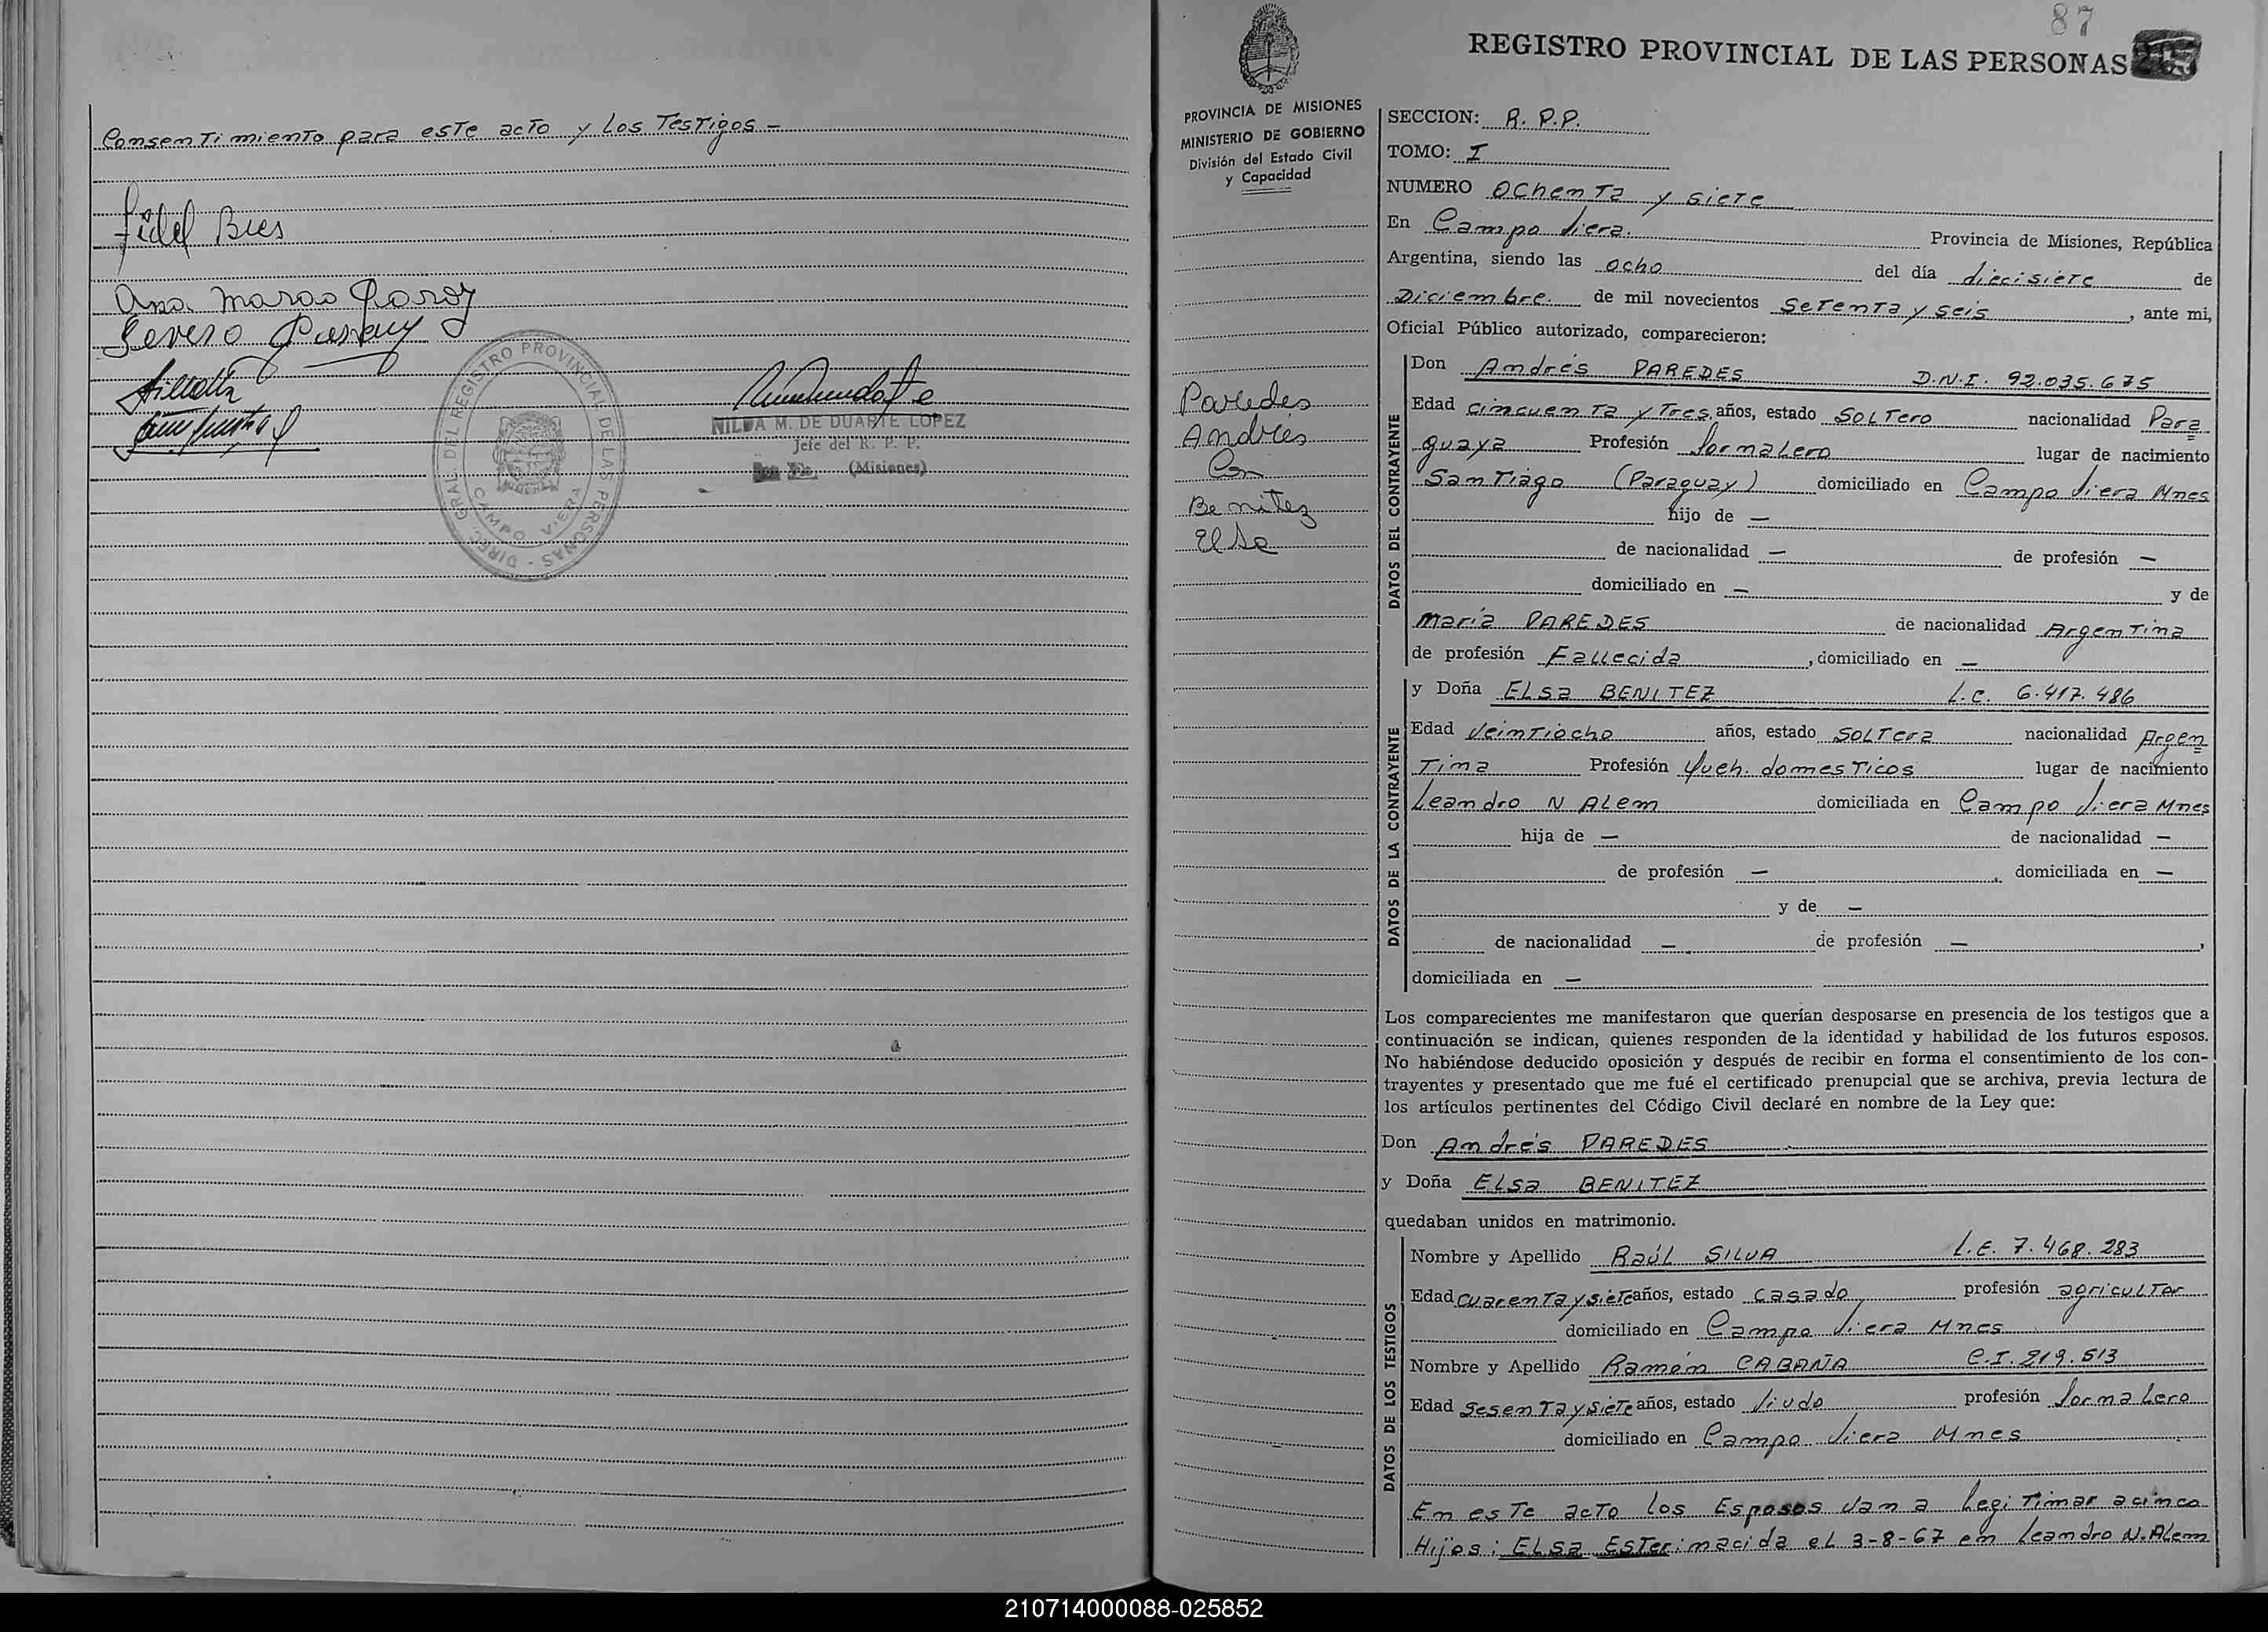 Consentimiento para este acto y los Testigos -
Fidel Bies
Ana Maria Garay
Severo Garay
DIREC. GRAL. DEL REGISTRO PROVINCIAL DE LAS PERSONAS -
CAMPO VIERA
NILDA M. DE DUARTE LOPEZ
Jefe del R. P. P.
(Misiones)
87
REGISTRO PROVINCIAL DE LAS PERSONAS 205
PROVINCIA DE MISIONES
MINISTERIO DE GOBIERNO
División del Estado Civil
y Capacidad
Paredes
Andrés
Con
Benitez
Elsa
SECCION: R. P.P.
TOMO: I
NUMERO Ochenta y siete
En Campo Viera. Provincia de Misiones, República
Argentina, siendo las ocho del día diecisiete de
Diciembre. de mil novecientos Setenta y seis, ante mi,
Oficial Público autorizado, comparecieron:
DATOS DEL CONTRAYENTE
Don Andrés PAREDES D.N.I. 92.035.675
Edad cincuenta y Tres años, estado SOLTero nacionalidad Para=
guaya Profesión Jornalero lugar de nacimiento
Santiago (Paraguay) domiciliado en Campo Viera Mnes
hijo de —
de nacionalidad — de profesión —
domiciliado en — y de
María PAREDES de nacionalidad Argentina
de profesión Fallecida, domiciliado en —
DATOS DE LA CONTRAYENTE
y Doña ELsa BENITEZ L.C. 6.417.486
Edad Veintiocho años, estado SOLTera nacionalidad Argen=
Tina Profesión Queh. domesticos lugar de nacimiento
Leandro N ALem domiciliada en Campo Viera Mnes
hija de — de nacionalidad —
de profesión —, domiciliada en —
y de —
de nacionalidad — de profesión —,
domiciliada en —
Los comparecientes me manifestaron que querían desposarse en presencia de los testigos que a
continuación se indican, quienes responden de la identidad y habilidad de los futuros esposos.
No habiéndose deducido oposición y después de recibir en forma el consentimiento de los con-
trayentes y presentado que me fué el certificado prenupcial que se archiva, previa lectura de
los artículos pertinentes del Código Civil declaré en nombre de la Ley que:
Don Andrés PAREDES
y Doña ELSa BENITEZ
quedaban unidos en matrimonio.
DATOS DE LOS TESTIGOS
Nombre y Apellido Raúl SILVA L.E. 7.468.283
Edad cuarenta y siete años, estado casado profesión agricultor
domiciliado en Campo Viera Mnes
Nombre y Apellido Ramón CABAÑA C.I. 219.513
Edad sesenta y siete años, estado Viudo profesión Jornalero
domiciliado en Campo Viera Mnes
En este acto los Esposos van a Legitimar a cinco
Hijos: ELSa ESTer: nacida el 3-8-67 en Leandro N. ALem
210714000088-025852